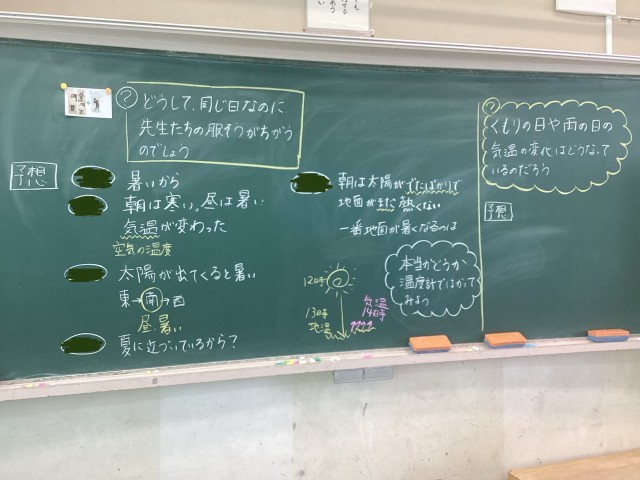 ? どうして、同じ日なのに
先生たちの服そうがちがう
のでしょう
予想
暑いから
朝は寒い。昼は暑い
気温が変わった
空気の温度
太陽が出てくると暑い
東→南→西
昼、暑い
夏に近づいているから?
朝は太陽がでたばかりで
地面がまだ熱くない
一番地面が暑くなるのは
12時
13時
地温
気温
14時
本当かどうか
温度計ではかって
みよう
? くもりの日や雨の日の
気温の変化はどうなって
いるのだろう
予想